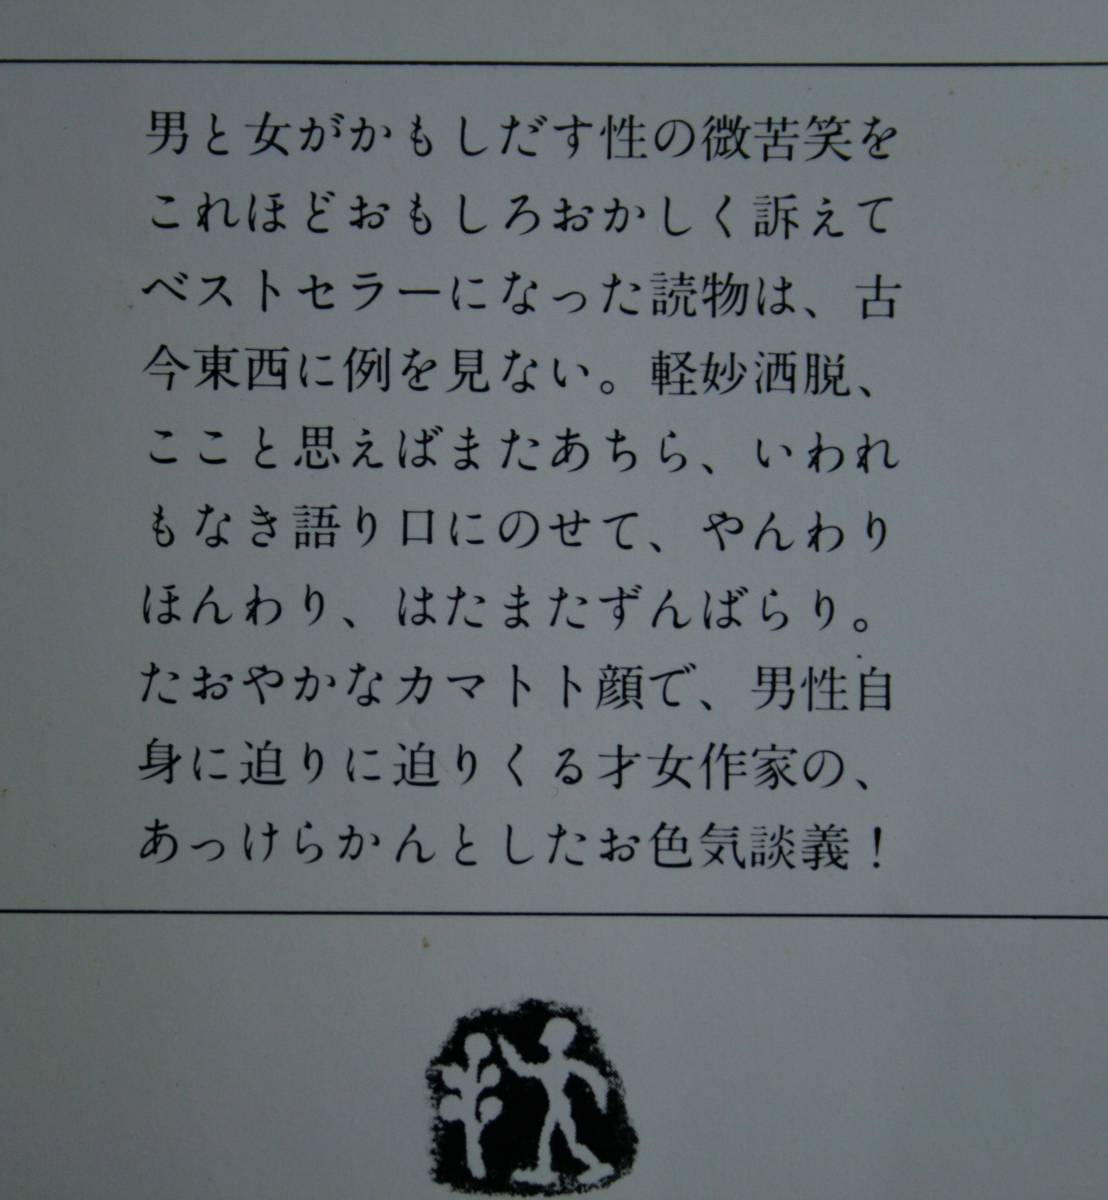 男と女がかもしだす性の微苦笑を
これほどおもしろおかしく訴えて
ベストセラーになった読物は、古
今東西に例を見ない。軽妙洒脱、
ここと思えばまたあちら、いわれ
もなき語り口にのせて、やんわり
ほんわり、はたまたずんばらり。
たおやかなカマトト顔で、男性自
身に迫りに迫りくる才女作家の、
あっけらかんとしたお色気談義！